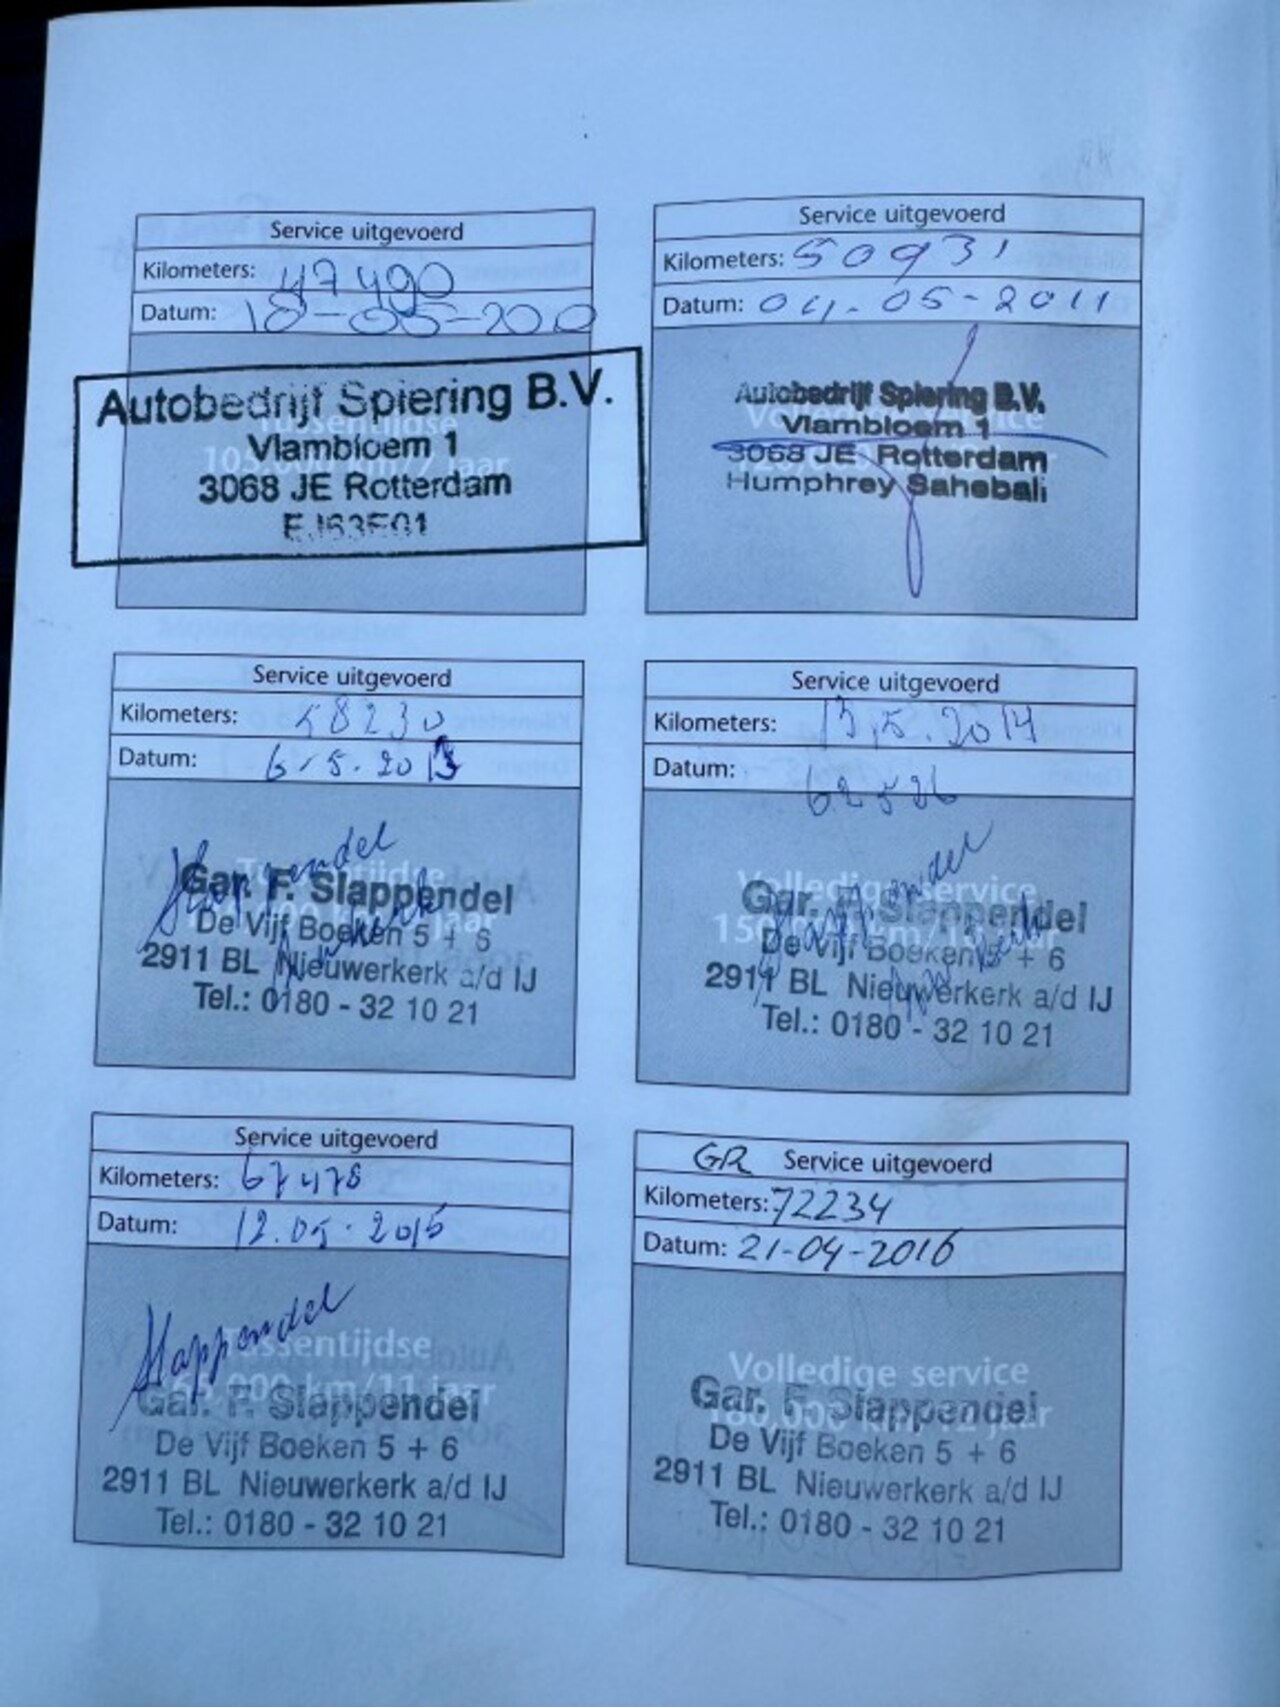 Service uitgevoerd
Kilometers: 47490
Datum: 18-05-200
Tussentijdse
105.000 km/7 jaar
Autobedrijf Spiering B.V.
Vlambloem 1
3068 JE Rotterdam
Service uitgevoerd
Kilometers: 50931
Datum: 04-05-2011
Volledige service
Autobedrijf Spiering B.V.
Vlambloem 1
3068 JE Rotterdam
Humphrey Sahebali
Service uitgevoerd
Kilometers: 58230
Datum: 6-5-2013
Slappendel
Tussentijdse
Gar. F. Slappendel
De Vijf Boeken 5 + 6
2911 BL Nieuwerkerk a/d IJ
Tel.: 0180 - 32 10 21
Service uitgevoerd
Kilometers: 13.5.2014
Datum: 62526
Slappendel
Volledige service
Gar. F. Slappendel
De Vijf Boeken 5 + 6
2911 BL Nieuwerkerk a/d IJ
Tel.: 0180 - 32 10 21
Service uitgevoerd
Kilometers: 67478
Datum: 12.05.2015
Slappendel
Tussentijdse
165.000 km/11 jaar
Gar. F. Slappendel
De Vijf Boeken 5 + 6
2911 BL Nieuwerkerk a/d IJ
Tel.: 0180 - 32 10 21
GR Service uitgevoerd
Kilometers: 72234
Datum: 21-04-2016
Volledige service
180.000 km/12 jaar
Gar. F. Slappendel
De Vijf Boeken 5 + 6
2911 BL Nieuwerkerk a/d IJ
Tel.: 0180 - 32 10 21